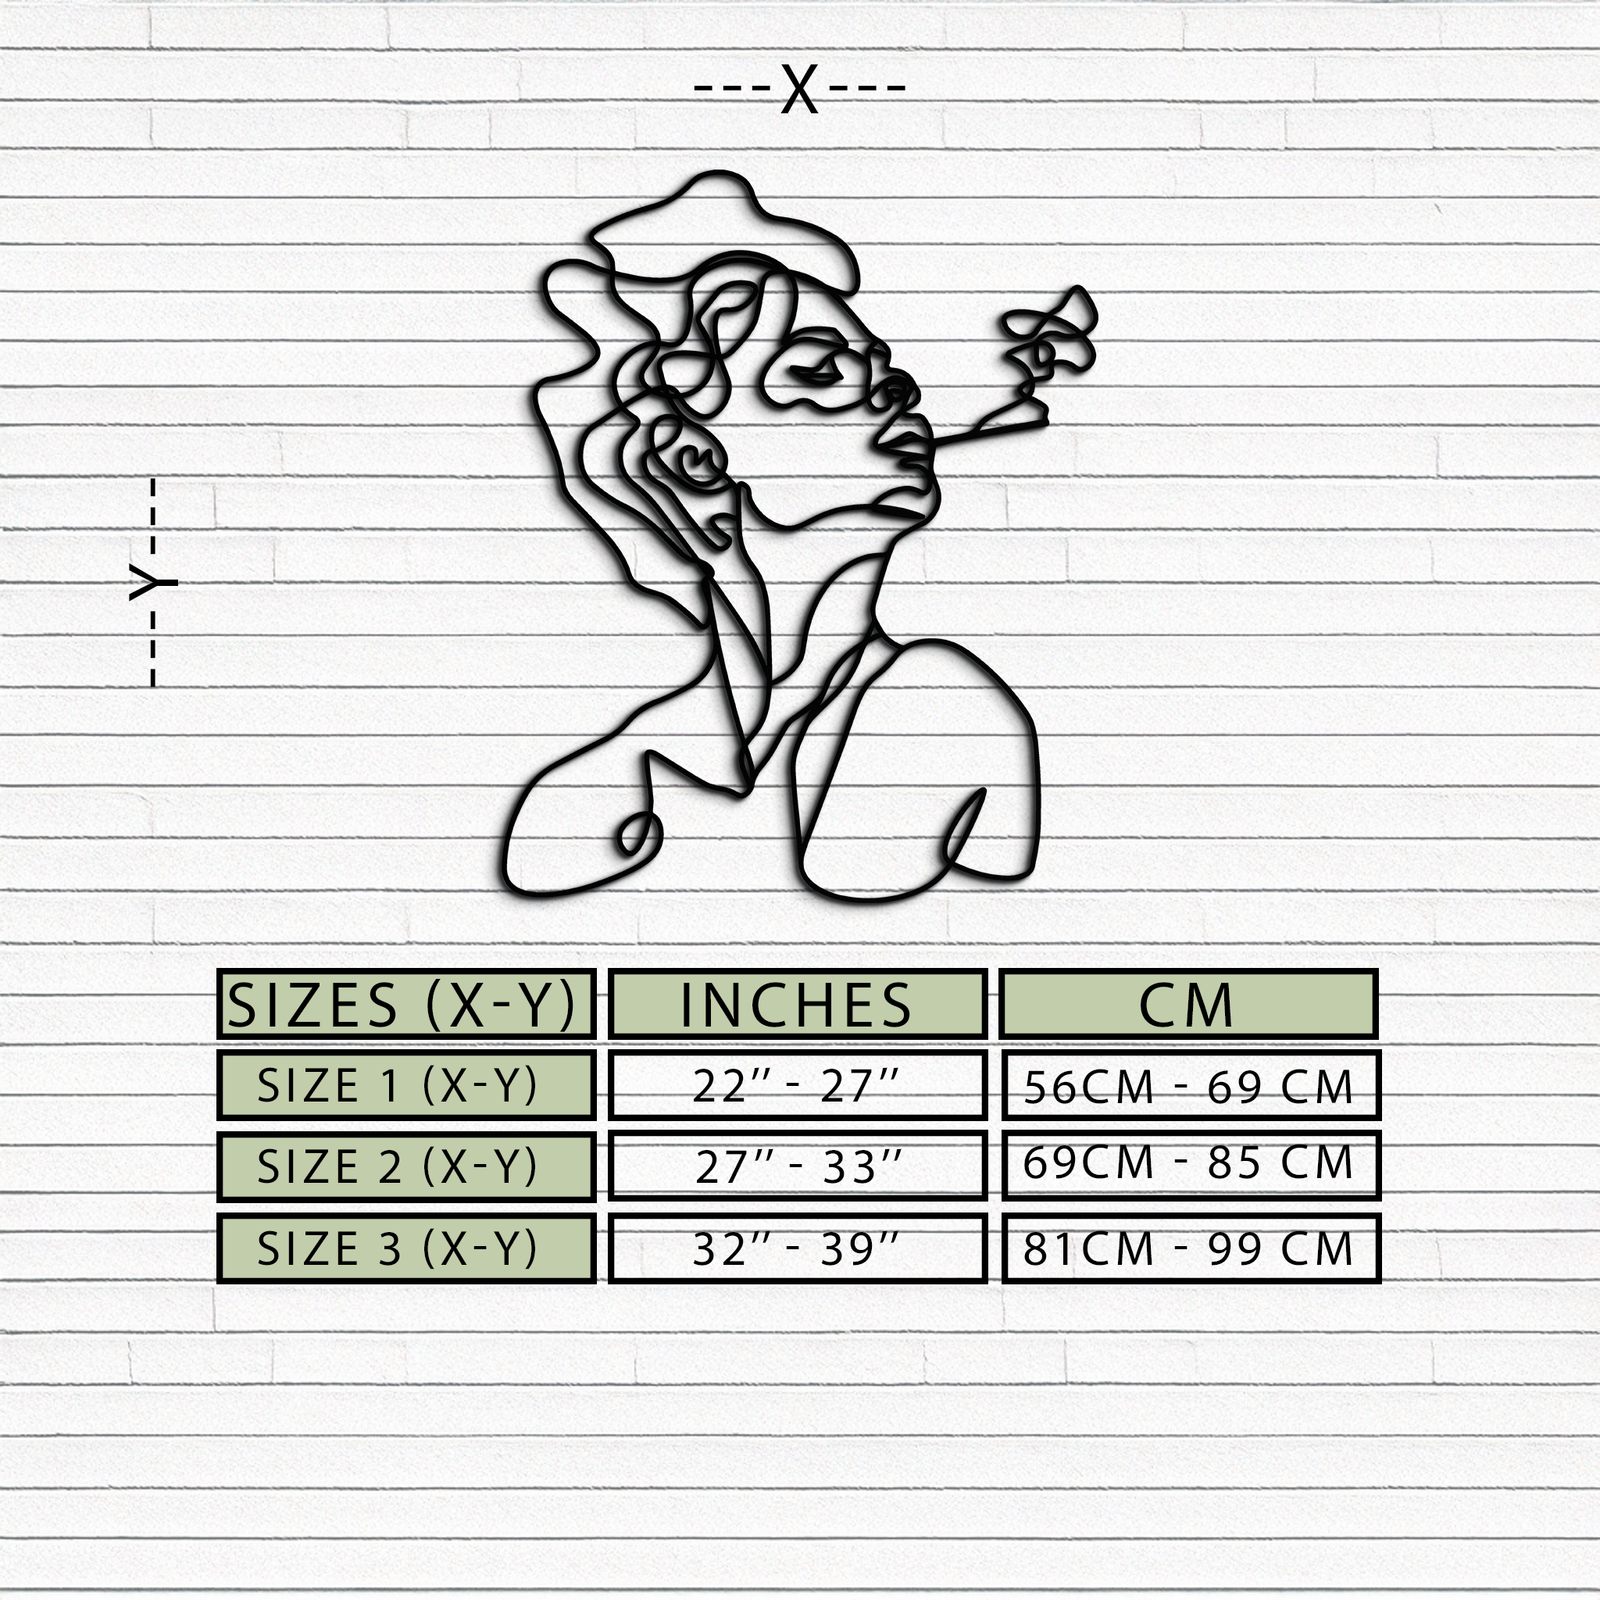 ---X---
---Y---
SIZES (X-Y) INCHES CM
SIZE 1 (X-Y) 22’’ - 27’’ 56CM - 69 CM
SIZE 2 (X-Y) 27’’ - 33’’ 69CM - 85 CM
SIZE 3 (X-Y) 32’’ - 39’’ 81CM - 99 CM